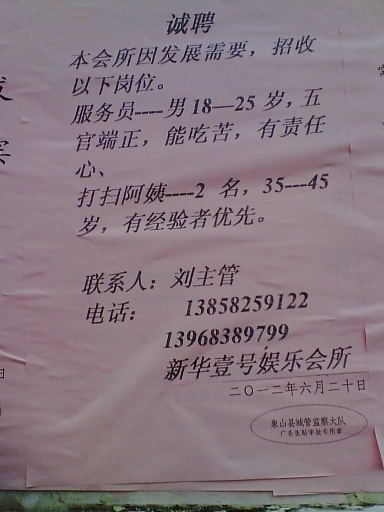 诚聘
本会所因发展需要，招收
以下岗位。
服务员----男18—25岁，五
官端正，能吃苦，有责任
心、
打扫阿姨----2 名，35---45
岁，有经验者优先。
联系人：刘主管
电话： 13858259122
13968389799
新华壹号娱乐会所
二〇一二年六月二十日
象山县城管监察大队
广告张贴审批专用章